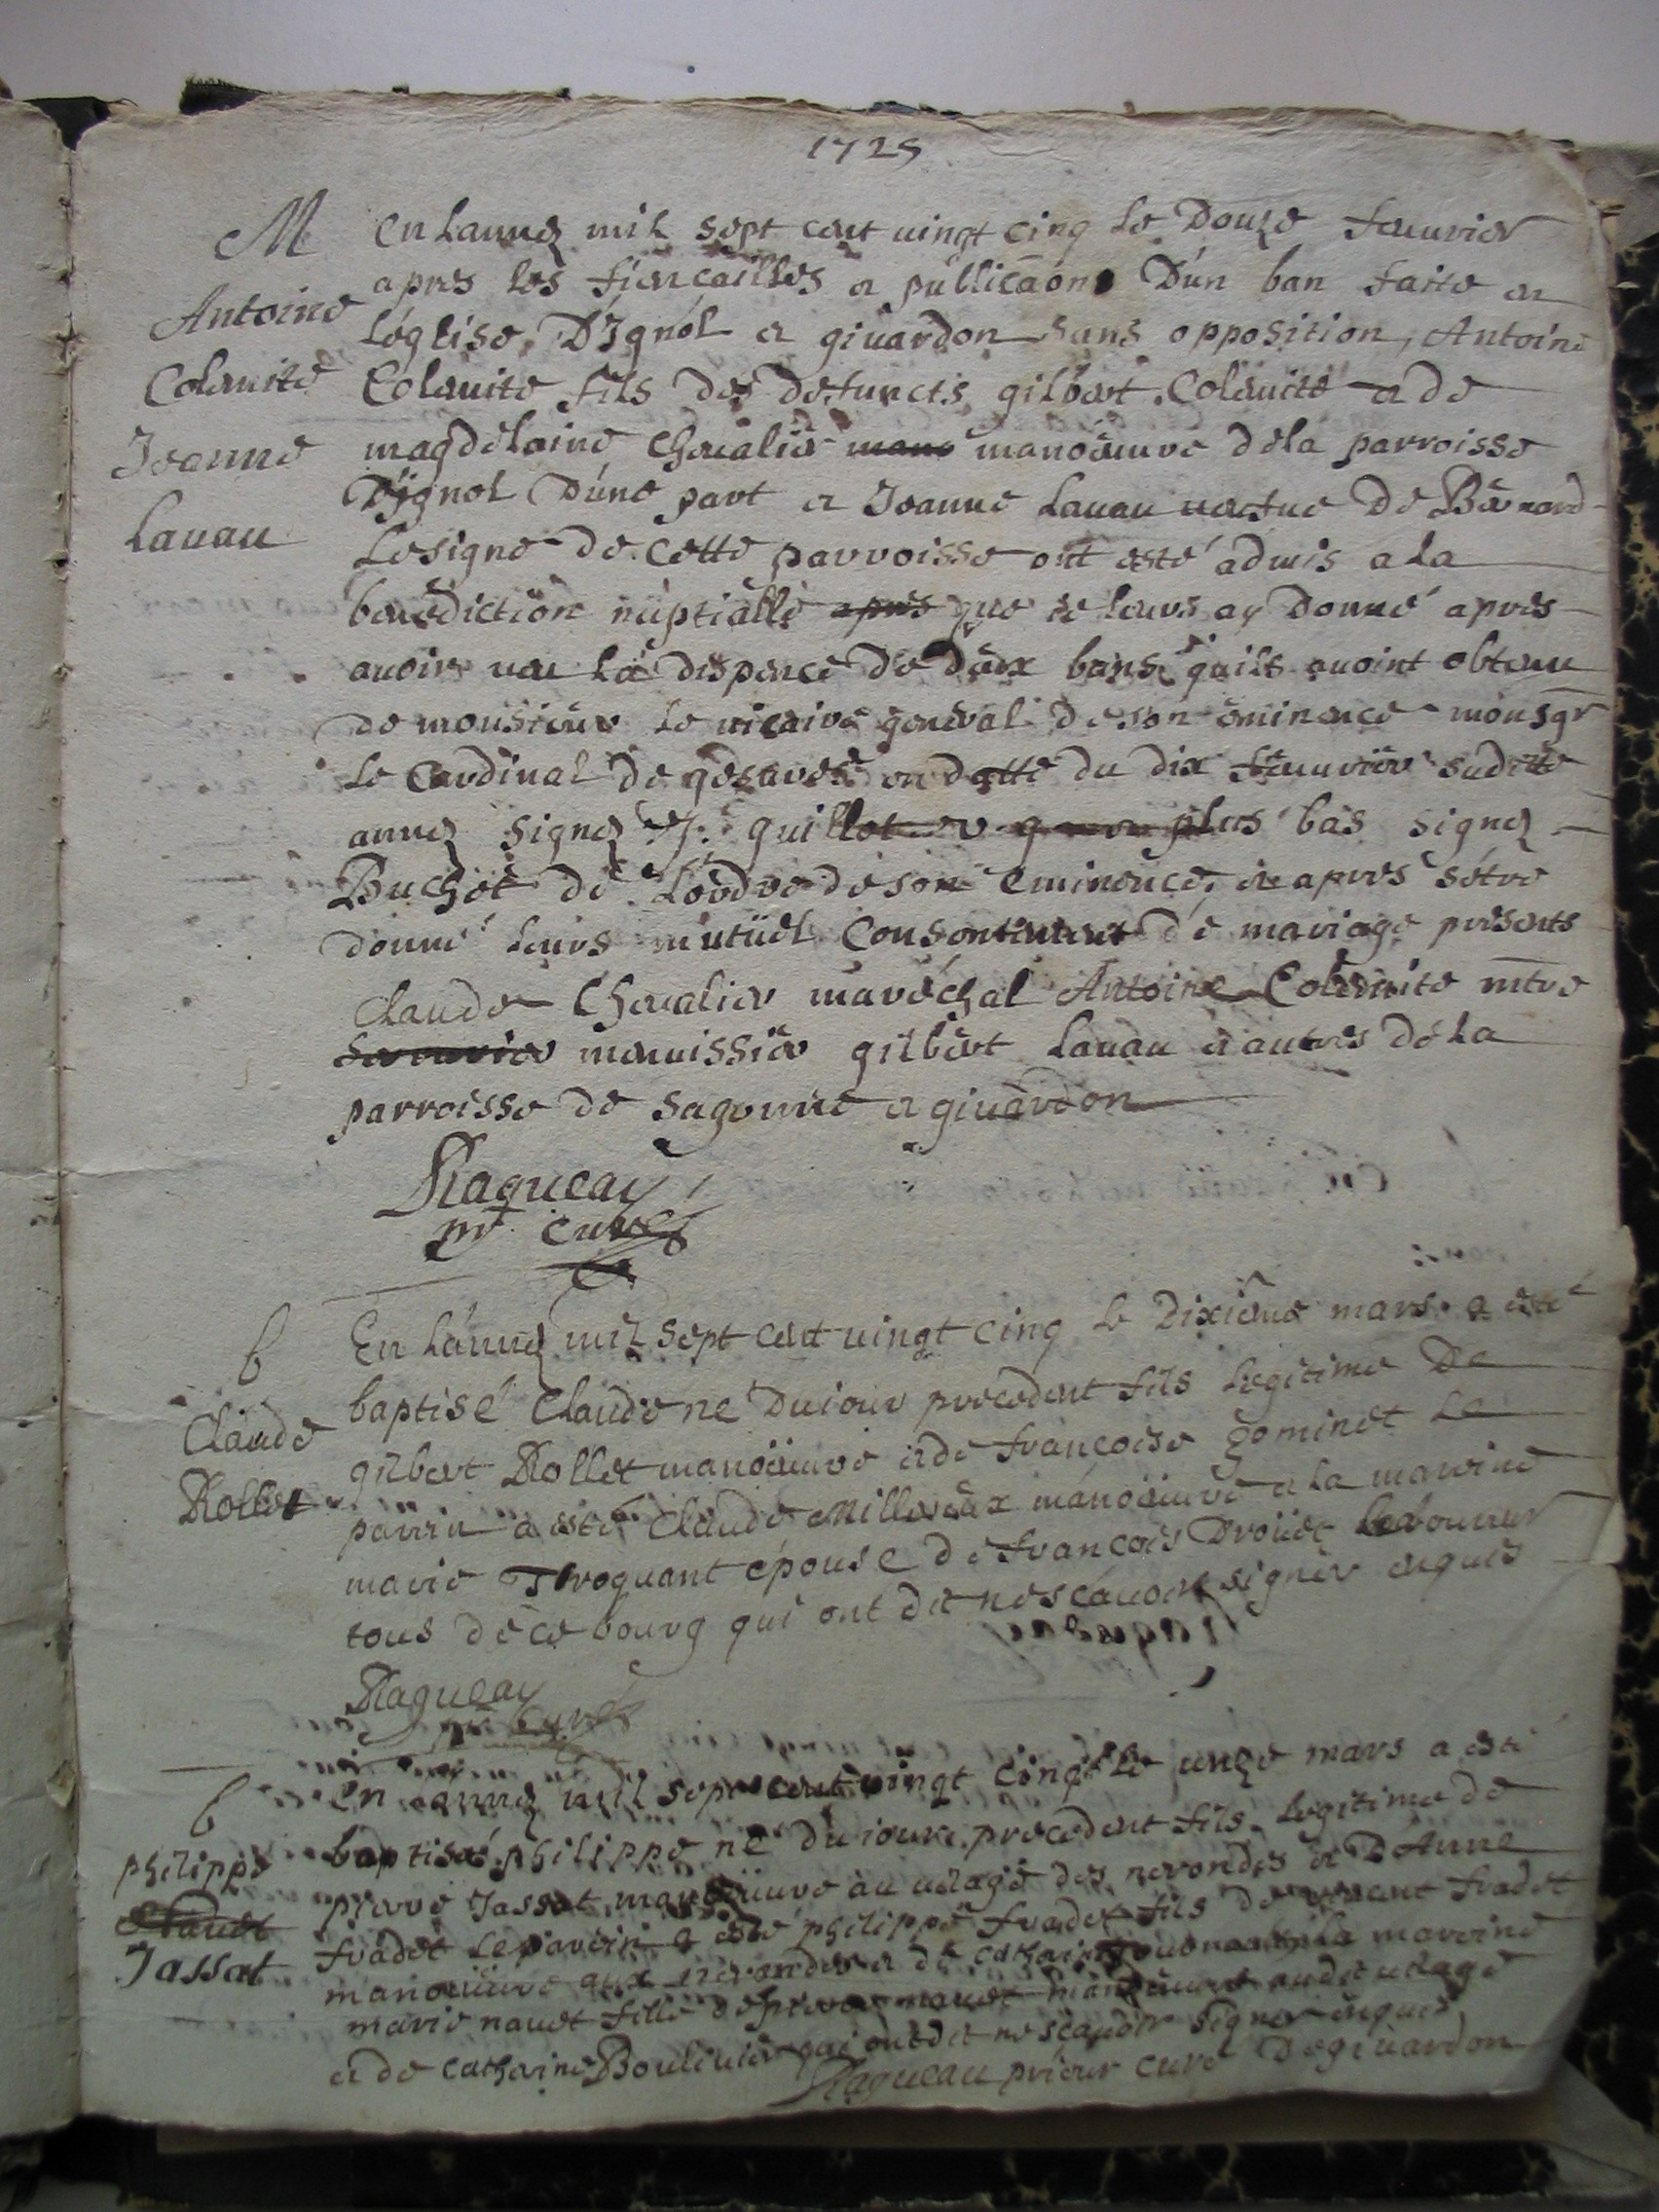 1725
M
Antoine
Colevite
Jeanne
Lavau
En lannez mil sept cent vingt cinq le Douze feuvrier
apres les fiencailles et publicaon D'un ban faite en
léglise D'Ignol et givardon sans opposition, Antoine
Colevite fils des defuncts gilbert Colevite et de
magdelaine Chevalier mano manoeuvre dela parroisse
D'ignol D'une part et Jeanne Lavau vefue De Bernard
Lesigne de cette parroisse ont esté admis a la
benediction nuptialle apres que ie leurs ay Donné apres
avoir veu la dispence de deux bans quils avoint obtenu
de monsieur le vicaire general de son eminence monsgr
le Cardinal de gesvres en datte du dix feuvrier suditte
annez signez J. guillot et plus bas signez
Buchet de Lordre de son eminence, et apres sétre
donné leurs mutuel Consentement de mariage presents
Claude Chevalier maréchal Antoine Colevite mtre
serurier menuissier gilbert Lavau et autres de la
parroisse de sagonne et givardon
Ragueau
pr curé
b
Claude
Rollet
En lannez mil sept cent vingt cinq le Dixieme mars a esté
baptisé Claude né du iour precedent fils legitime De
gilbert Rollet manoeuvre et de francoise gominet Le
parrin a esté Claude Millereux manoeuvre et la marrine
marie Troquant épouse de francois Droüet laboureur
tous de ce bourg qui ont dit ne scavoir signer enquis
Ragueau
pr curé
b
philippe
Naudet
Jassat
En lannez mil sept cent vingt cinq le unze mars a esté
baptisé philippe né du iour precedent fils legitime de
pierre Jassat manoeuvre au vilage des nerondes et D'Anne
fradet le parrin a esté philippe fradet fils de fradet
manoeuvre aux nerondes et de catherine la marrine
marie naudet fille de pierre naudet manoeuvre audit vilage
et de catherine Boulivier qui ont dit ne scavoir signer enquis
Ragueau prieur curé De givardon